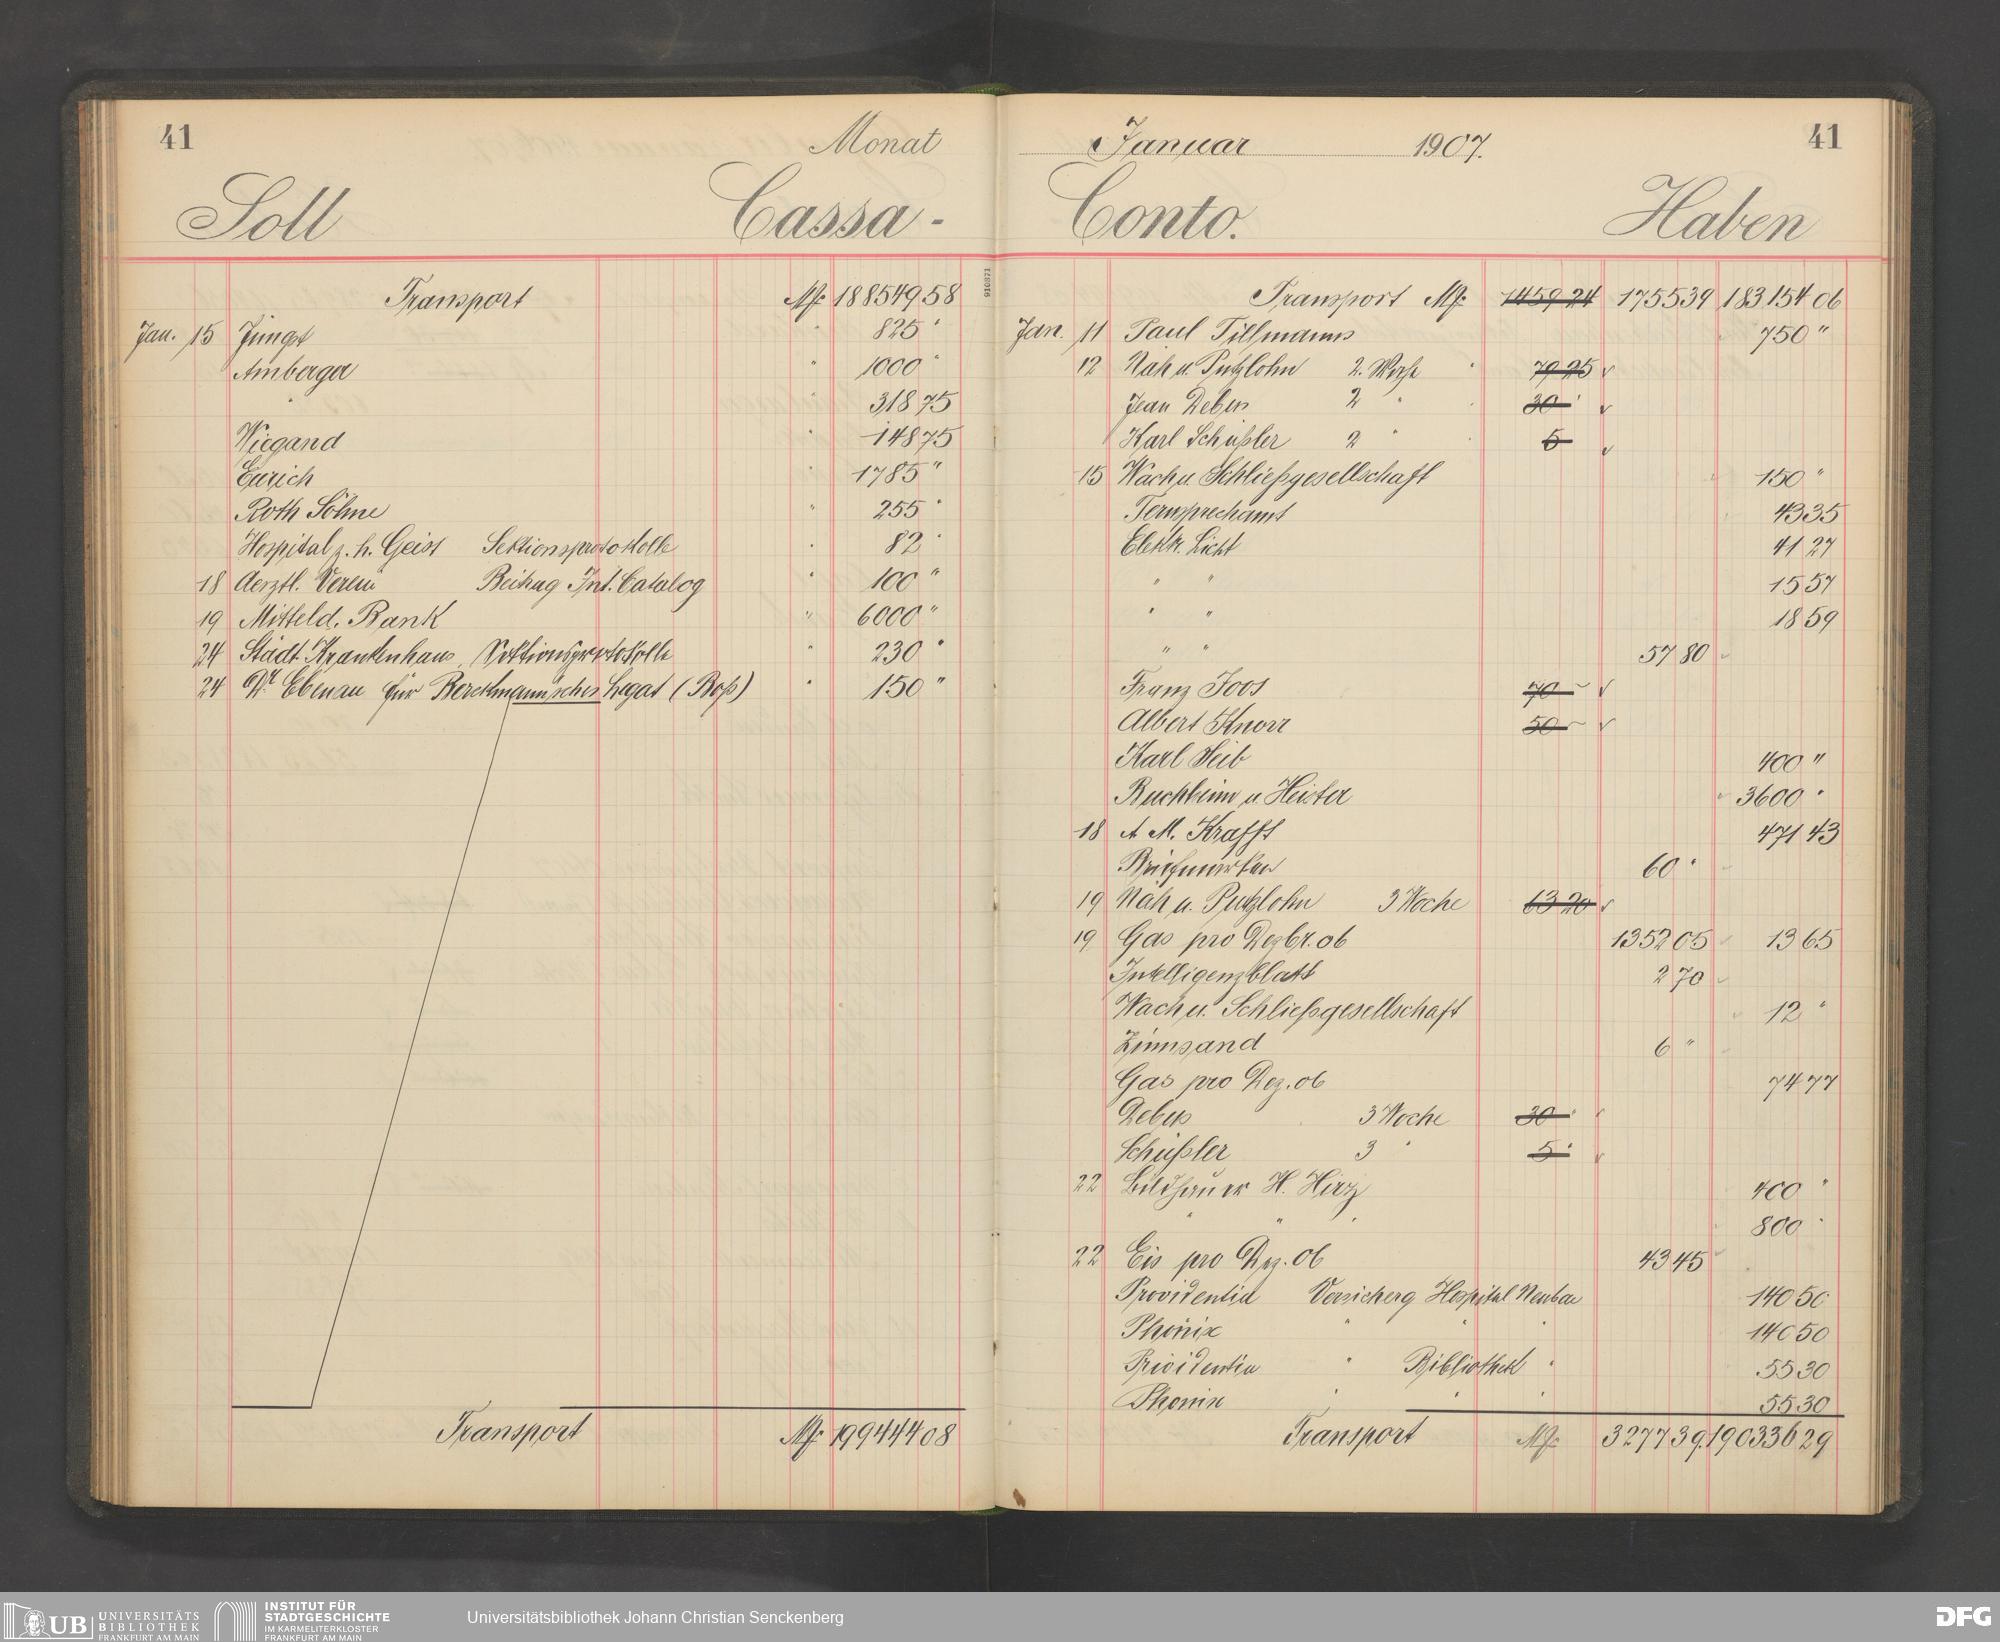 41
Monat
Soll
Cassa-
Transport Mk 188549 58
Jan. 15 Jüngst " 825 "
Amberger " 1000 "
" " 318 75
Wiegand " 148 75
Eurich " 1785 "
Roth Söhne " 255 "
Hospital z. h. Geist Sektionsprotokolle " 82 "
18 Aerztl. Verein Beitrag Int. Catalog " 100 "
19 Mitteld. Bank " 6000 "
24 Städt Krankenhaus, Sektionsprotokolle " 230 "
24 Dr. Ebenau für Berckmann'sches Legat (Boß) " 150 "
Transport Mk 199444 08
910871
Januar 1907.
41
Conto.
Haben
Transport Mk: 1459 24 1755 39 183154 06
Jan. 11 Paul Tillmanns 750 "
12 Näh u. Putzlohn 2. Woche " 79 25
Jean Debus 2 " 30 "
Karl Schüßler 2 " 5
15 Wach u. Schließgesellschaft 150 "
Fernsprechamt 43 35
Elektr. Licht 41 27
" " 15 57
" " 18 59
" " 57 80
Franz Joos 70 –
Albert Knorr 50 –
Karl Weib 400 "
Buchheim u. Heister 3600 "
18 A M. Krafft 471 43
Briefmarken 60 "
19 Näh u. Putzlohn 3 Woche 63 20
19 Gas pro Dezbr. 06 1352 05 13 65
Intelligenzblatt 2 70
Wach u. Schließgesellschaft 12 "
Zinnsand 6 "
Gas pro Dez. 06 74 77
Debus 3 Woche 30 "
Schüßler 3 " 5 "
22 Bildhauer H. Hirz 400 "
" " " 800 "
22 Eis pro Dez. 06 43 45
Providentia Versicherg Hospital Neubau 140 50
Phönix " " " 140 50
Providentia " Bibliothek " 55 30
Phönix " " " 55 30
Transport Mk: 3277 39 190336 29
UB UNIVERSITÄTS
BIBLIOTHEK
FRANKFURT AM MAIN
INSTITUT FÜR
STADTGESCHICHTE
IM KARMELITERKLOSTER
FRANKFURT AM MAIN
Universitätsbibliothek Johann Christian Senckenberg
DFG